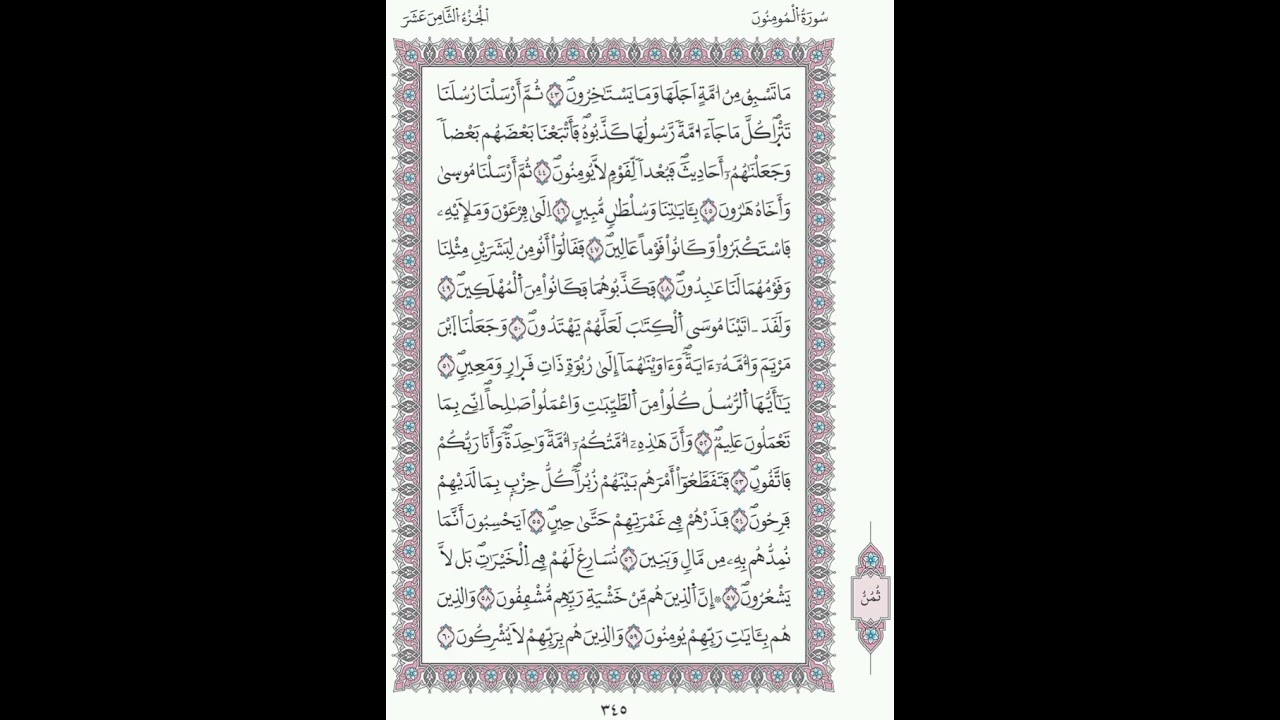 سُورَةُ الْمُومِنُونَ
الْجُزْءُ الثَّامِنَ عَشَرَ
مَا تَسْبِقُ مِنُ ا۟مَّةٍ اَجَلَهَا وَمَا يَسْتَٰخِرُونَۖ ٤٣ ثُمَّ أَرْسَلْنَا رُسُلَنَا
تَتْر۪اۖ كُلَّ مَا جَآءَ ا۟مَّةٗ رَّسُولُهَا كَذَّبُوهُۖ فَأَتْبَعْنَا بَعْضَهُم بَعْضاٗ
وَجَعَلْنَٰهُمُۥٓ أَحَادِيثَۖ فَبُعْداٗ لِّقَوْمٖ لَّا يُومِنُونَۖ ٤٤ ثُمَّ أَرْسَلْنَا مُوس۪ىٰ
وَأَخَاهُ هَٰرُونَ ٤٥ بِـَٔايَٰتِنَا وَسُلْطَٰنٖ مُّبِينٍ ٤٦ اِلَىٰ فِرْعَوْنَ وَمَلَإِيْهِۦ
فَاسْتَكْبَرُواْ وَكَانُواْ قَوْماً عَالِينَۖ ٤٧ فَقَالُوٓاْ أَنُومِنُ لِبَشَرَيْنِ مِثْلِنَا
وَقَوْمُهُمَا لَنَا عَٰبِدُونَۖ ٤٨ فَكَذَّبُوهُمَا فَكَانُواْ مِنَ اَ۬لْمُهْلَكِينَۖ ٤٩
وَلَقَدَ اٰتَيْنَا مُوسَى اَ۬لْكِتَٰبَ لَعَلَّهُمْ يَهْتَدُونَۖ ٥٠ وَجَعَلْنَا اَ۪بْنَ
مَرْيَمَ وَأُمَّهُۥٓ ءَايَةٗۖ وَءَاوَيْنَٰهُمَآ إِلَىٰ رُبْوَةٖ ذَاتِ قَر۪ارٖ وَمَعِينٖۖ ٥١
يَٰٓأَيُّهَا اَ۬لرُّسُلُ كُلُواْ مِنَ اَ۬لطَّيِّبَٰتِ وَاعْمَلُواْ صَٰلِحاًۖ اِنِّے بِمَا
تَعْمَلُونَ عَلِيمٞۖ ٥٢ وَأَنَّ هَٰذِهِۦٓ أُمَّتُكُمُۥٓ أُمَّةٗ وَٰحِدَةٗۖ وَأَنَا رَبُّكُمْ
فَاتَّقُونِۖ ٥٣ فَتَقَطَّعُوٓاْ أَمْرَهُم بَيْنَهُمْ زُبُراٗۖ كُلُّ حِزْبِۢ بِمَا لَدَيْهِمْ
فَرِحُونَۖ ٥٤ فَذَرْهُمْ فِے غَمْرَتِهِمْ حَتَّىٰ حِينٍۖ ٥٥ اَيَحْسِبُونَ أَنَّمَا
نُمِدُّهُم بِهِۦ مِن مَّالٖ وَبَنِينَ ٥٦ نُسَارِعُ لَهُمْ فِے اِ۬لْخَيْرَٰتِۖ بَل لَّا
يَشْعُرُونَۖ ٥٧ ۞ إِنَّ اَ۬لذِينَ هُم مِّنْ خَشْيَةِ رَبِّهِم مُّشْفِقُونَ ٥٨ وَالذِينَ
هُم بِـَٔايَٰتِ رَبِّهِمْ يُومِنُونَ ٥٩ وَالذِينَ هُم بِرَبِّهِمْ لَا يُشْرِكُونَ ٦٠
ثُمُنُ
٣٤٥